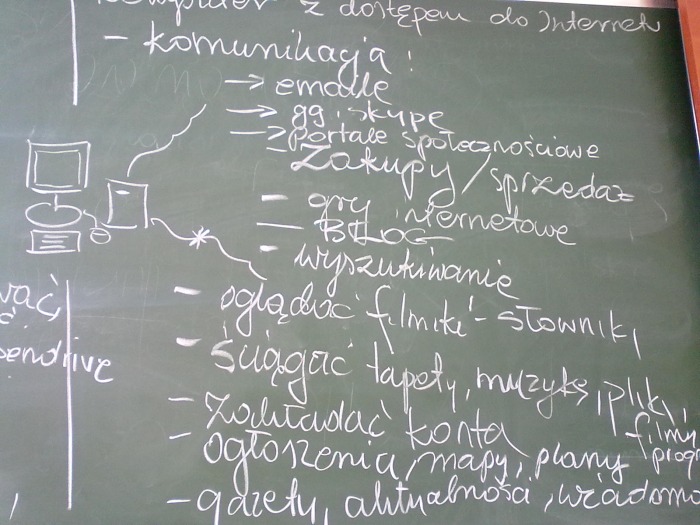 komputer z dostępem do Internetu
- komunikacja:
→ emaile
→ gg, skype
→ portale społecznościowe
- Zakupy / sprzedaż
- gry internetowe
- BLOG
- wyszukiwanie
- oglądać filmiki - słowniki
- ściągać tapety, muzykę, pliki, filmy, progr
- zakładać konta
- ogłoszenia, mapy, plany
- gazety, aktualności, wiadomo
wać,
ć
pendrive